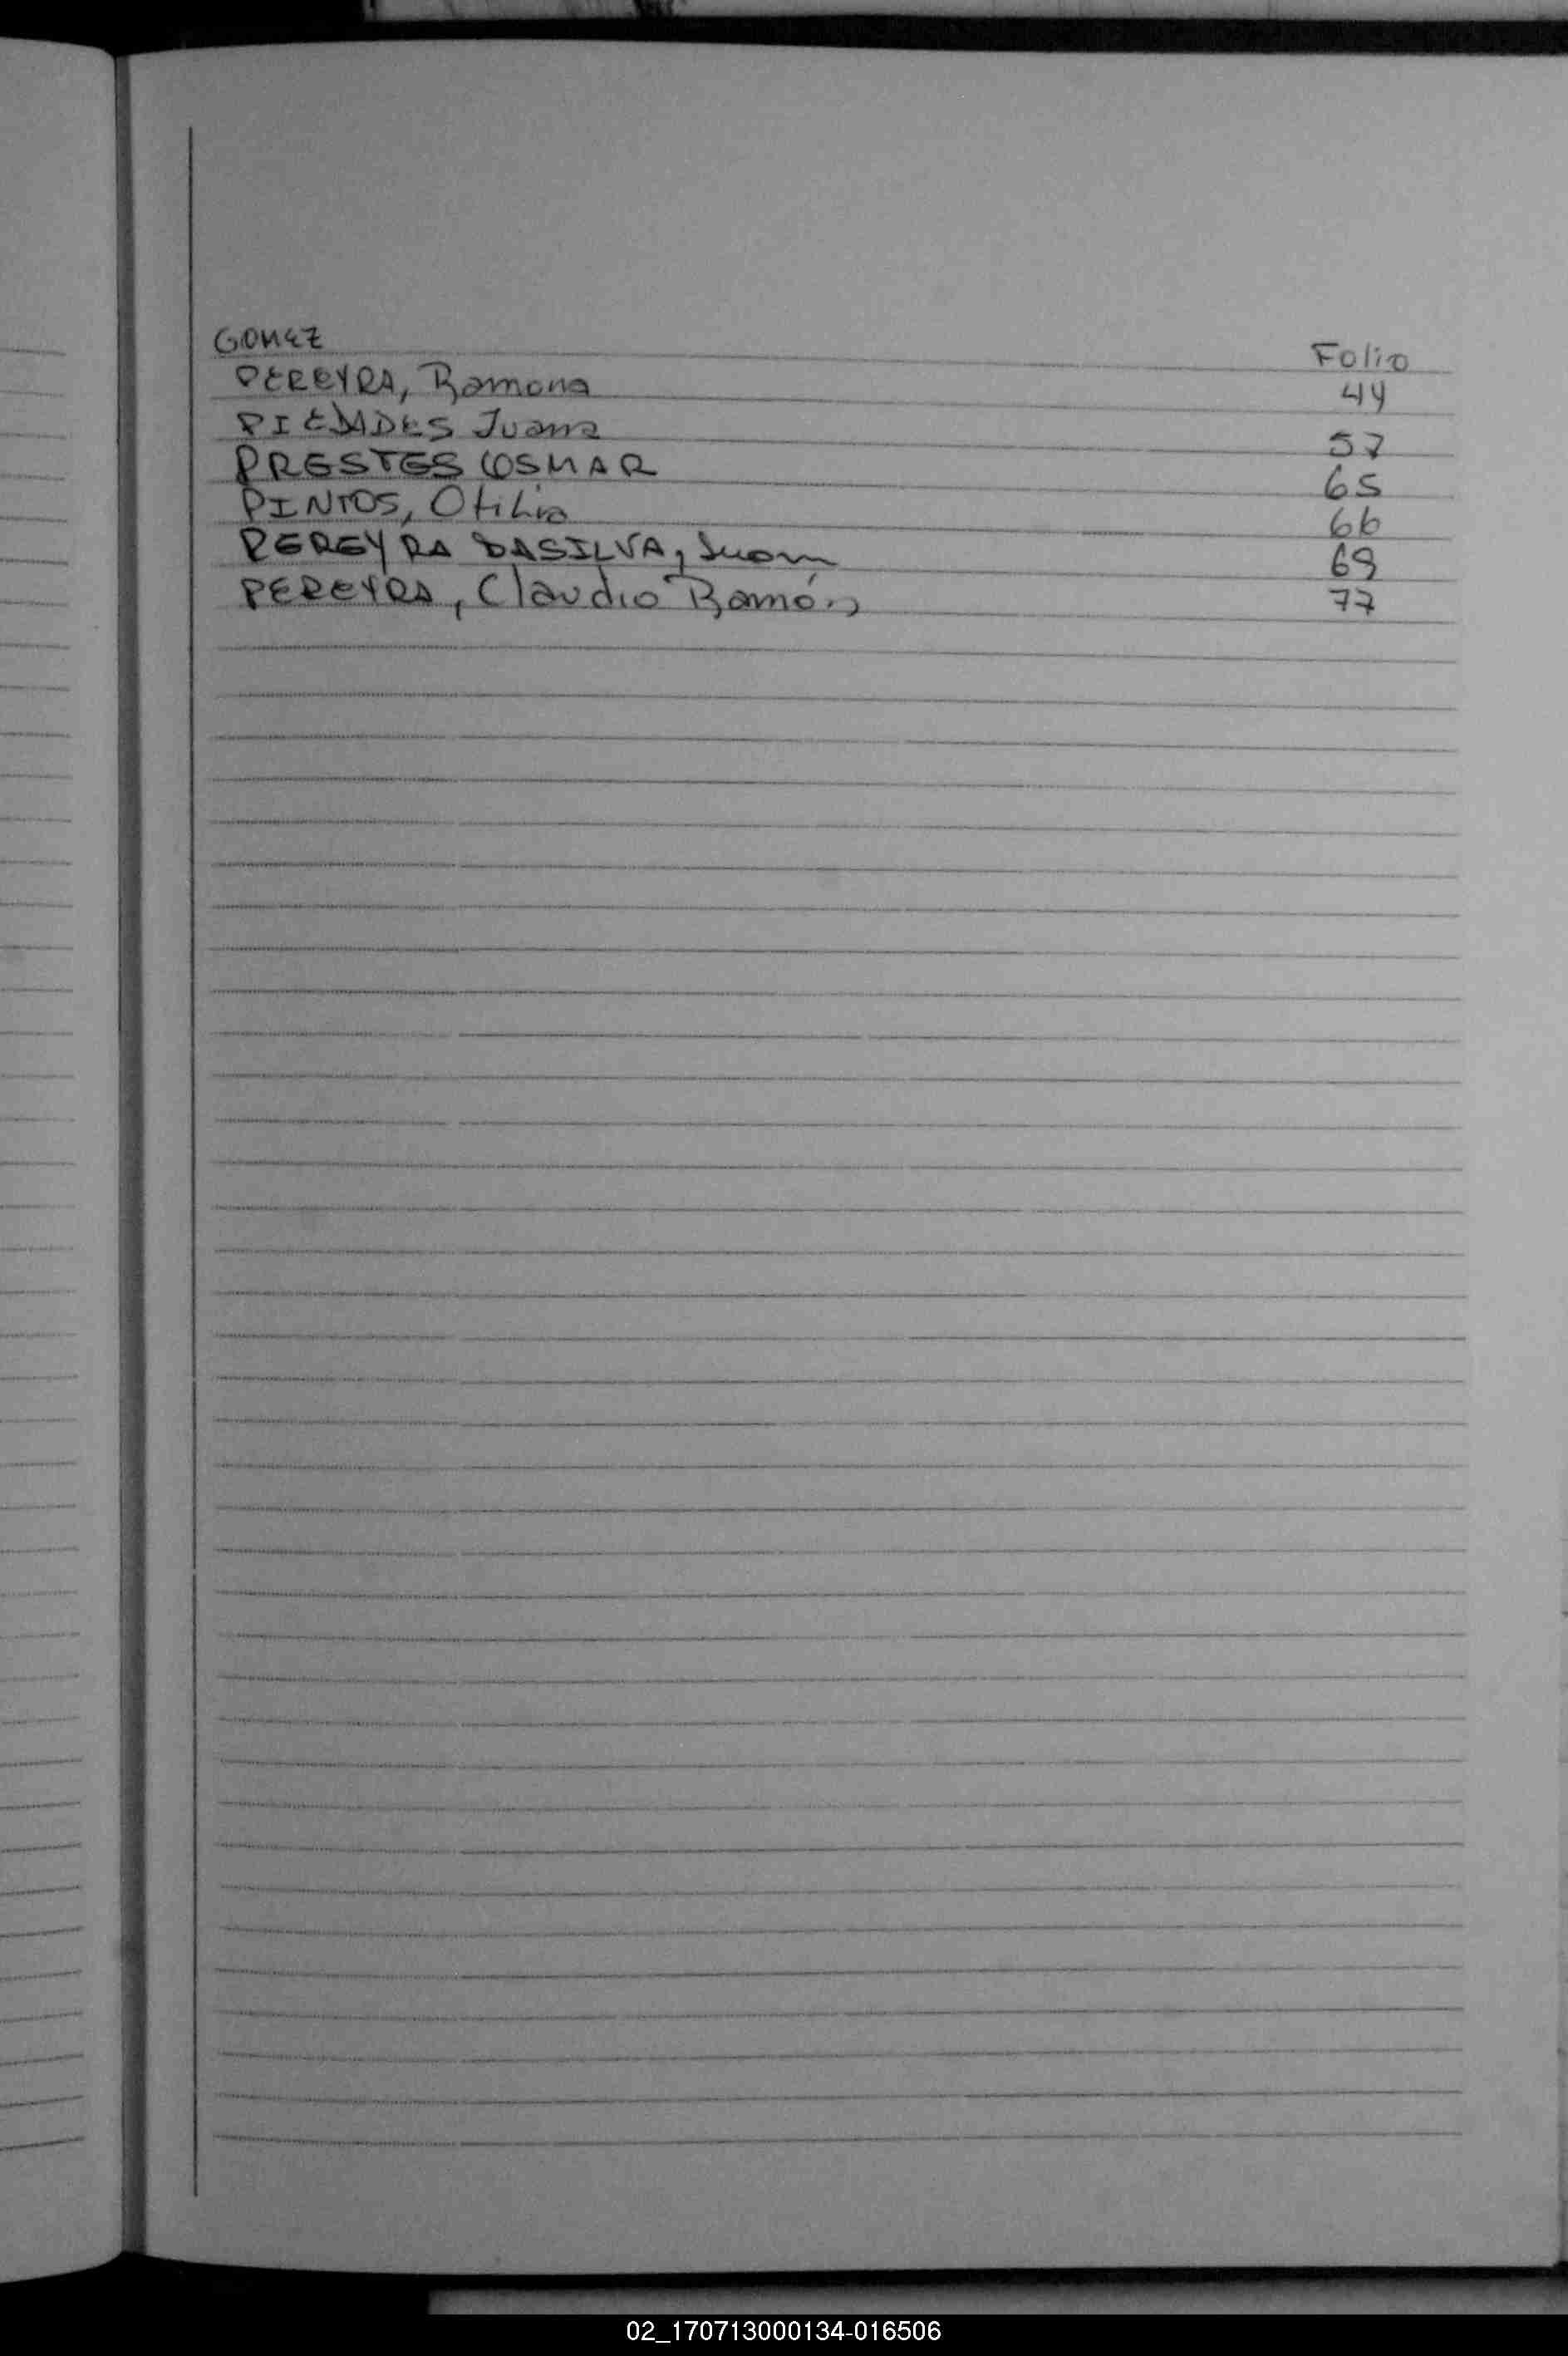 GOMEZ
Folio
PEREYRA, Ramona 44
PIEDADES Juana 57
PRESTES OSMAR 65
PINTOS, Otilia 66
PEREYRA DASILVA, Juan 69
PEREYRA, Claudio Ramón 77
02_170713000134-016506